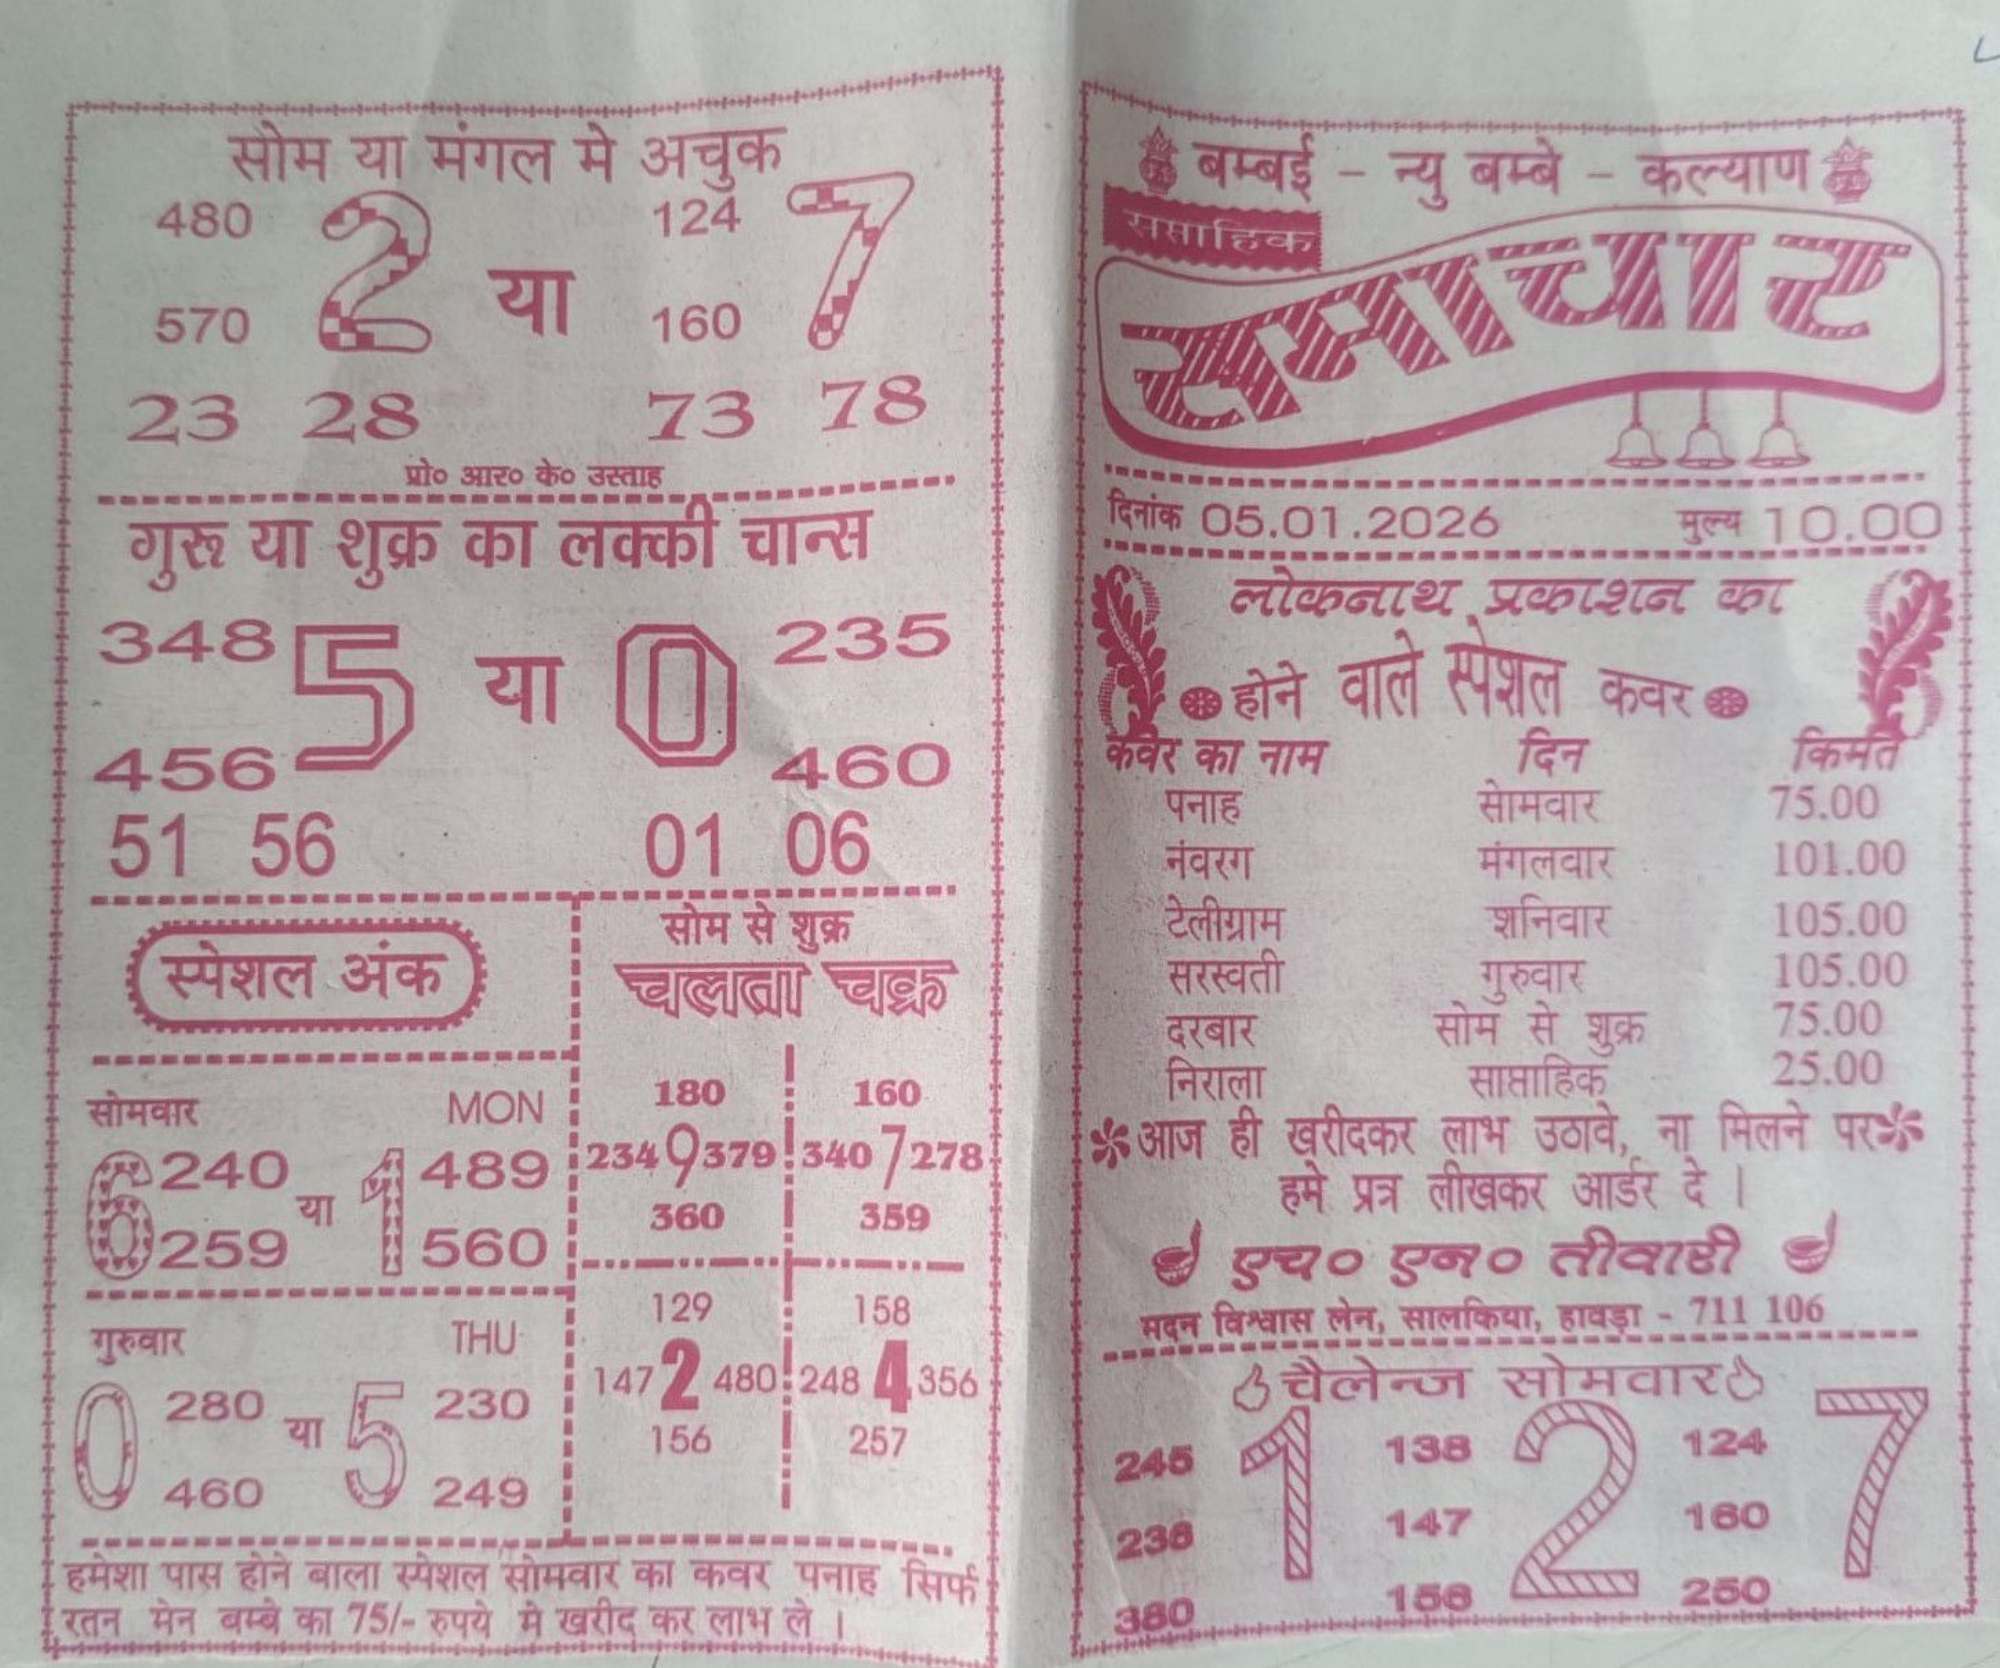 सोम या मंगल मे अचुक
480 2 या 124 7
570 160
23 28 73 78
प्रो० आर० के० उस्ताह
गुरू या शुक्र का लक्की चान्स
348 5 या 0 235
456 460
51 56 01 06
स्पेशल अंक
सोमवार MON
6 240 या 1 489
259 560
गुरुवार THU
0 280 या 5 230
460 249
सोम से शुक्र
चलता चक्र
180 160
234 9 379 340 7 278
360 359
129 158
147 2 480 248 4 356
156 257
हमेशा पास होने बाला स्पेशल सोमवार का कवर पनाह सिर्फ
रतन मेन बम्बे का 75/- रुपये मे खरीद कर लाभ ले ।
बम्बई - न्यु बम्बे - कल्याण
सप्ताहिक
समाचार
दिनांक 05.01.2026 मुल्य 10.00
लोकनाथ प्रकाशन का
होने वाले स्पेशल कवर
कवर का नाम दिन किमत
पनाह सोमवार 75.00
नंवरग मंगलवार 101.00
टेलीग्राम शनिवार 105.00
सरस्वती गुरुवार 105.00
दरबार सोम से शुक्र 75.00
निराला साप्ताहिक 25.00
आज ही खरीदकर लाभ उठावे, ना मिलने पर
हमे प्रत्र लीखकर आर्डर दे ।
एच० एन० तीवारी
मदन विश्वास लेन, सालकिया, हावड़ा - 711 106
चैलेन्ज सोमवार
245 1 138 2 124 7
236 147 160
380 156 250